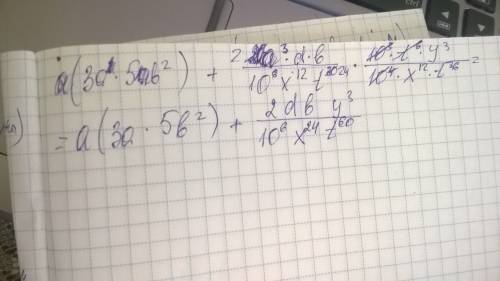 a(3a · 5ab²) + 2a³·d·b / 10⁸ x¹² t²⁰²⁴ · 10³·t⁶·y³ / 10⁴·x¹²·t³⁶ =
= a(3a · 5b²) + 2 d b y³ / 10⁶ x²⁴ t⁶⁰